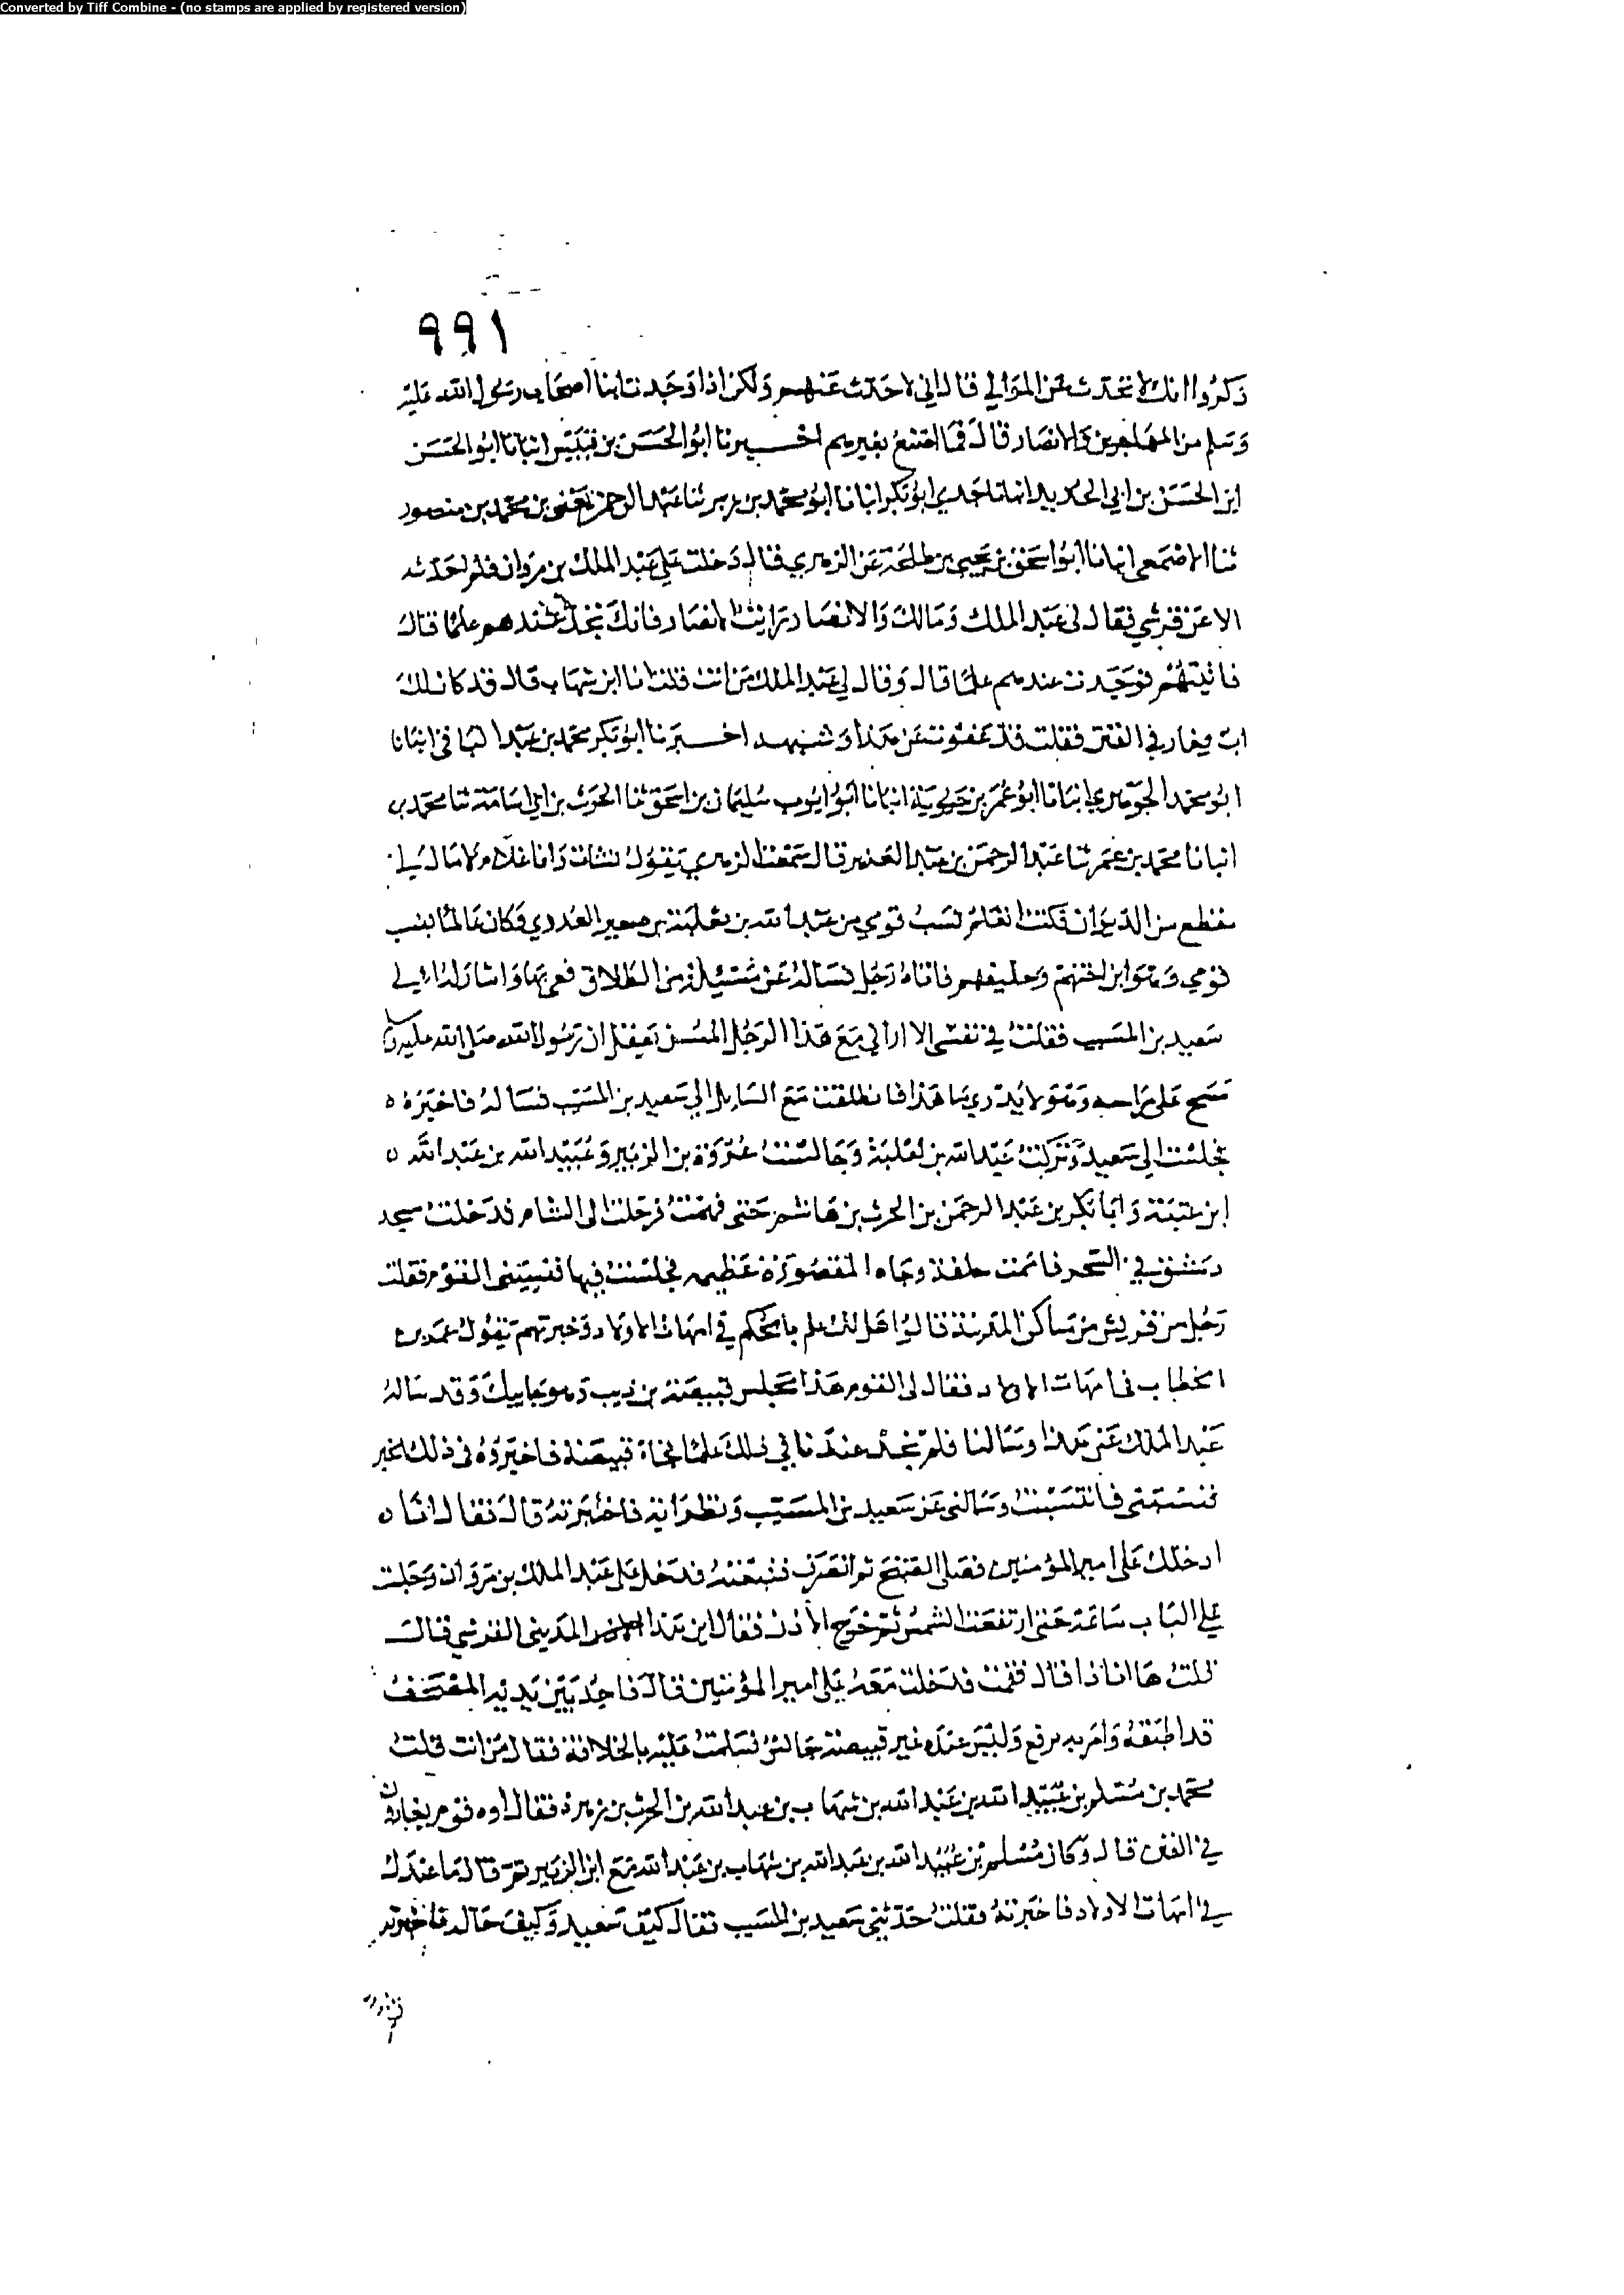 Converted by Tiff Combine - (no stamps are applied by registered version)
٩٩١
ذكروا انك لا تحدث عن الموالي قال اني لاحدث عنهم ولكن اذا وجدت ابنا اصحاب رسول الله عليه
وسلم من المهاجرين والانصار قال فما اصنع بغيرهم اخبرنا ابو الحسن بن قبيس انبانا ابو الحسن
ابن الحسن بن ابي الحديد انبانا جدي ابو بكر انبانا ابو محمد بن زبر ثنا عبد الرحمن يعني بن محمد بن منصور
ثنا الاصمعي انبانا ابو اسحق بن يحيى بن طلحة عن الزهري قال دخلت على عبد الملك بن مروان فلم احدثه
الا عن قرشي فقال لي عبد الملك ومالك والانصار رايت الانصار فانك تجد عندهم علما قال
فاتيتهم فوجدت عندهم علما قال وقال لي عبد الملك من انت قلت انا ابن شهاب قال قد كان لك
اب يغار في الفتن فقلت قد عفوت عن هذا وشبهه اخبرنا ابو بكر محمد بن عبد الباقي انبانا
ابو محمد الجوهري انبانا ابو عمر بن حيوية انبانا ابو ايوب سليمان بن اسحق ثنا الحرث بن ابي اسامة ثنا محمد بن
انبانا محمد بن عمر ثنا عبد الرحمن بن عبد العزيز قال سمعت الزهري يقول نشات وانا غلام ولا مال لي
منقطع من الديوان فكنت اتعلم نسب قومي من عبد الله بن ثعلبة بن صعير العدوي فكان عالما بنسب
قومي وهو ابن اختهم وحليفهم فاتاه رجل فساله عن مسئلة من الطلاق فعي بها واشار له الى
سعيد بن المسيب فقلت في نفسي الا اراني مع هذا الرجل المسن يعقل ان رسول الله صلى الله عليه وسلم
مسح على راسه وهو لا يدري ما هذا فانطلقت مع السايل الى سعيد بن المسيب فساله فاخبره ٥
فجلست الى سعيد وتركت عبد الله بن ثعلبة وجالست عروة بن الزبير وعبيد الله بن عبد الله ٥
ابن عتبة وابا بكر بن عبد الرحمن بن الحرث بن هاشم حتى فهمت فرحلت الى الشام فدخلت مسجد
دمشق في السحر فاممت حلقة وجاه المقصورة عظيمه فجلست فيها فنسبني القوم فقلت
رجل من قريش من ساكني المدينة قالوا هل لك علم بالحكم في امهات الاولاد فخبرتهم بقول عمر بن
الخطاب في امهات الاولاد فقال لي القوم هذا مجلس قبيصة بن ذيب وهو جاييك وقد ساله
عبد الملك عن هذا وسالنا فلم يجد عندنا في ذلك علما فجاة قبيصة فاخبروه في ذلك الخبر
فنسبني فانتسبت وسالني عن سعيد بن المسيب ونظرائه فاخبرته قال فقال انا ٥
ادخلك على امير المؤمنين فصلى الصبح ثم انصرف فتبعته فدخل على عبد الملك بن مروان وجلست
على الباب ساعة حتى ارتفعت الشمس ثم خرج الاذن فقال اين هذا المديني القرشي قال
قلت ها انا ذا قال فقمت فدخلت معه على امير المؤمنين قال فاجد بين يديه المصحف
قد اطبقه وامر به يرفع وليس عنده غير قبيصة جالس فسلمت عليه بالخلافة فقال من انت قلت
محمد بن مسلم بن عبيد الله بن عبد الله بن شهاب بن عبد الله بن الحرث بن زهرة فقال اوه قوم يغارون
في الفتن قال وكان مسلم بن عبيد الله بن عبد الله بن شهاب بن عبد الله مع ابن الزبير ثم قال ما عندك
في امهات الاولاد فاخبرته فقلت حدثني سعيد بن المسيب فقال كيف سعيد وكيف حاله فاخبرته